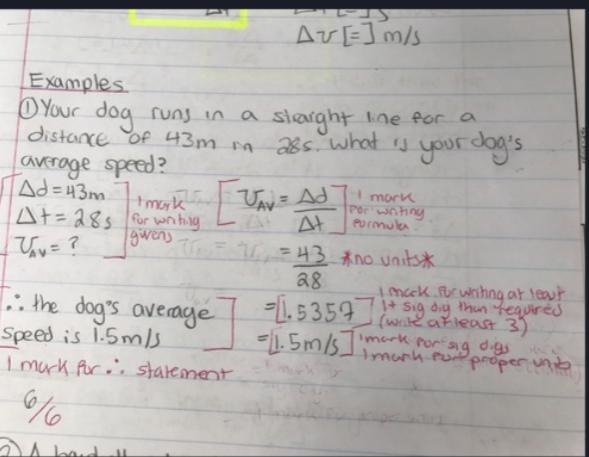 Δv [=] m/s
Examples
① Your dog runs in a staright line for a
distance of 43m in 28s. What is your dog's
average speed?
Δd = 43m
Δt = 28s
V_AV = ?
1 mark
for writing
givens
V_AV = Δd
Δt
1 mark
for writing
formula
= 43
28
*no units*
= 1.5357
1 mark for writing at least
1+ sig dig than required
(write at least 3)
= 1.5 m/s
1 mark for sig digs
1 mark for proper units
∴ the dog's average
speed is 1.5m/s
1 mark for ∴ statement
6/6